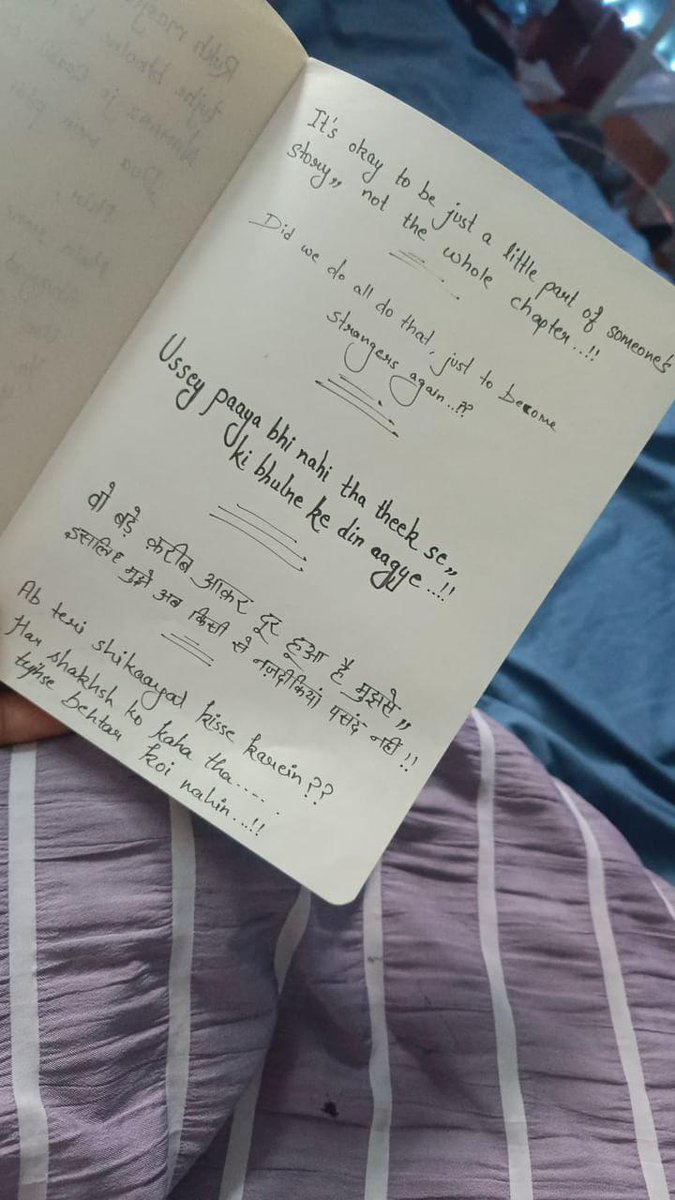 It's okay to be just a little part of someone's
story,, not the whole chapter...!!
Did we do all do that, just to become
strangers again...??
Ussey paaya bhi nahi tha theek se,,
ki bhulne ke din aagye...!!
वो बड़े क़रीब आकर दूर हुआ है मुझसे,,
इसलिए मुझे अब किसी से नज़दीकियां पसंद नहीं !!
Ab teri shikaayat kisse karein??
Har shakhsh ko kaha tha.....
tujhse behtar koi nahin...!!